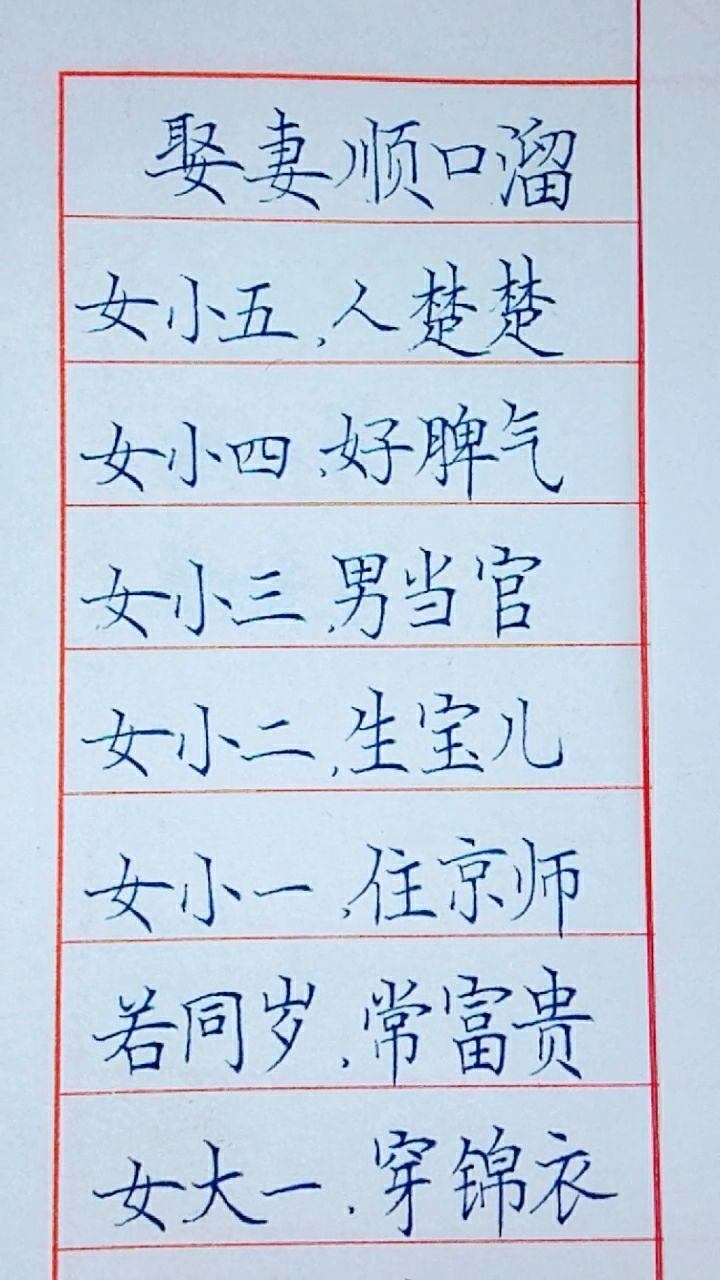 娶妻顺口溜
女小五，人楚楚
女小四，好脾气
女小三，男当官
女小二，生宝儿
女小一，住京师
若同岁，常富贵
女大一，穿锦衣